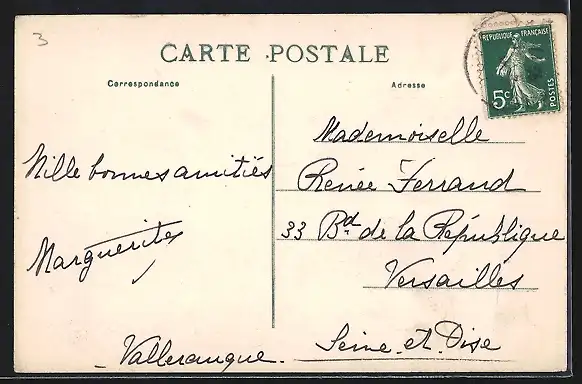 3
CARTE POSTALE
Correspondance
Adresse
REPUBLIQUE FRANÇAISE
5c
POSTES
Mille bonnes amitiés
Marguerite
Mademoiselle
Renée Ferrand
33 Bd. de la République
Versailles
Seine et Oise
- Valleraugue -